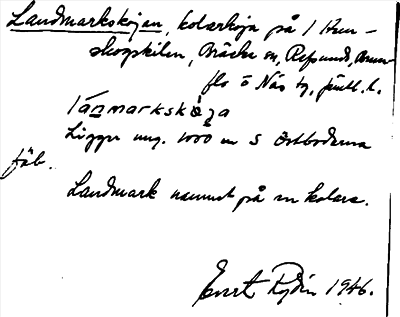 Landmarkskojan, kolarkoja på 1 Kron-
skogskilen, Bräcke sn, Refsunds, Brun-
flo o Näs tg, Jämtl. l.
lánmarskója
Ligger ung. 1000 m S Östbodarna
fäb.
Landmark namnet på en kolare.
Evert Rydin 1946.